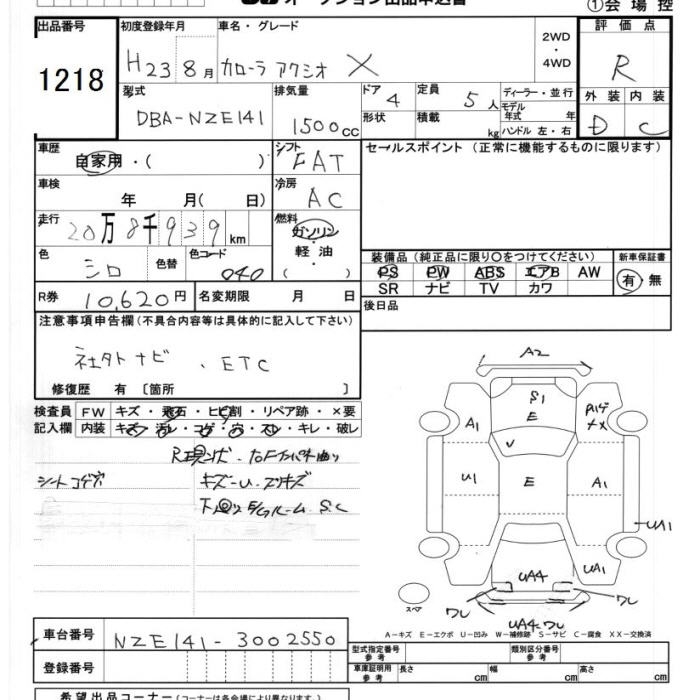 オークション出品申込書
①会場控
出品番号 初度登録年月 車名・グレード 2WD・4WD 評価点
1218 H23 8月 カローラ アクシオ X R
型式 排気量 ドア 4 定員 5人 ディーラー・並行 外装 内装
DBA-NZE141 1500cc 形状 積載 kg モデル年式 年 D C
ハンドル 左・右
車歴 自家用・( ) シフト FAT セールスポイント(正常に機能するものに限ります)
車検 年 月( 日) 冷房 AC
走行 20万8千939km 燃料 ガソリン
軽油
・( )
色 シロ 色替 色コード 040 装備品(純正品に限り○をつけてください) 新車保証書
PS PW ABS エアB AW 有・無
SR ナビ TV カワ
R券 10,620円 名変期限 月 日 後日品
注意事項申告欄(不具合内容等は具体的に記入して下さい)
社外ナビ、ETC
修復歴 有〔箇所 〕
検査員 FW キズ・飛石・ヒビ割・リペア跡・×要
記入欄 内装 キズ・汚レ・コゲ・穴・スレ・キレ・破レ
シートコゲ穴 キズ-U・スリキズ
A2
S1
E
A1
V
U1 E A1
UA1
UA4 UA1
ワレ ワレ
UA4 ワレ
スペア
A-キズ E-エクボ U-凹み W-補修跡 S-サビ C-腐食 XX-交換済
車台番号 NZE141-3002550 型式指定番号 参考 類別区分番号 参考
登録番号 車庫証明用 参考 長さ cm 幅 cm 高さ cm
希望出品コーナー(コーナーは各会場により異なります。)